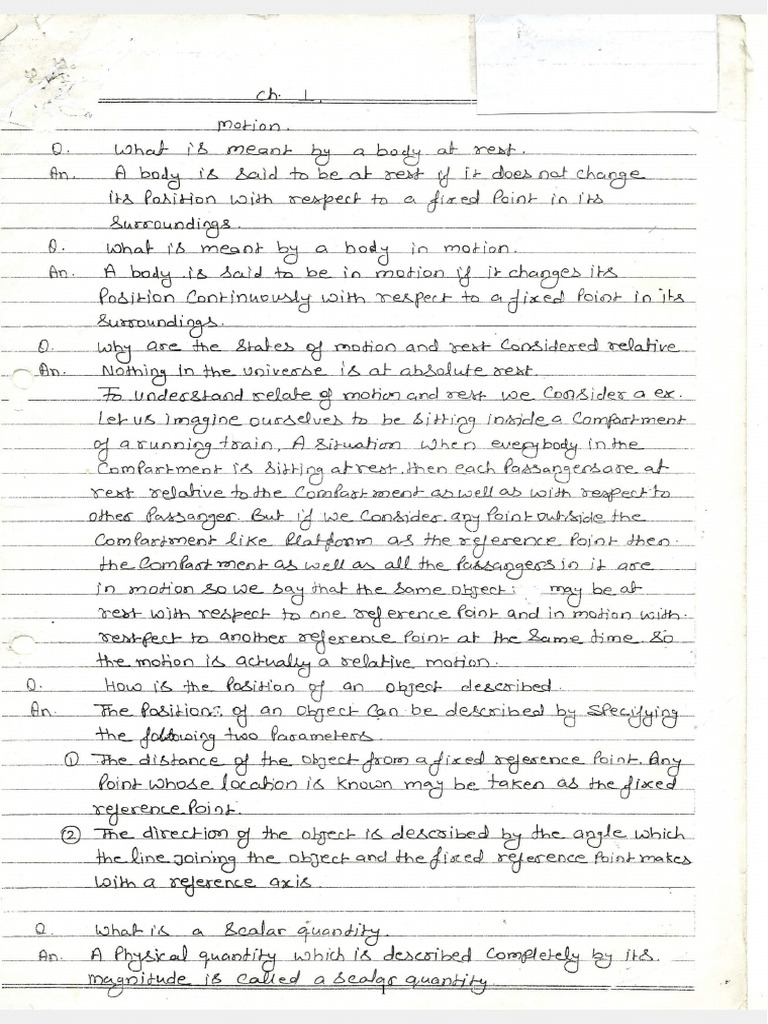 Ch. 1.
Motion.
Q. What is meant by a body at rest.
An. A body is said to be at rest if it does not change
its Position with respect to a fixed Point in its
Surroundings.
Q. What is meant by a body in motion.
An. A body is said to be in motion if it changes its
Position Continuously with respect to a fixed Point in its
Surroundings.
Q. Why are the States of motion and rest Considered relative
An. Nothing in the universe is at absolute rest.
To understand relate of motion and rest we Consider a ex.
Let us imagine ourselves to be sitting inside a Compartment
of a running train, A Situation when everybody in the
Compartment is sitting at rest. then each Passangers are at
rest relative to the Compartment as well as with respect to
other Passanger. But if we Consider any Point outside the
Compartment like Platform as the reference Point then
the Compartment as well as all the Passangers in it are
in motion so we say that the same object: may be at
rest with respect to one reference Point and in motion with
restpect to another reference Point at the Same time. So
the motion is actually a relative motion.
Q. How is the Position of an object described.
An. The Position: of an object Can be described by Specifying
the following two Parameters.
① The distance of the object from a fixed reference Point. Any
Point whose location is known may be taken as the fixed
reference Point.
② The direction of the object is described by the angle which
the line Joining the object and the fixed reference Point makes
with a reference axis.
Q. What is a Scalar quantity.
An. A Physical quantity which is described Completely by its
magnitude is Called a Scalar quantity.